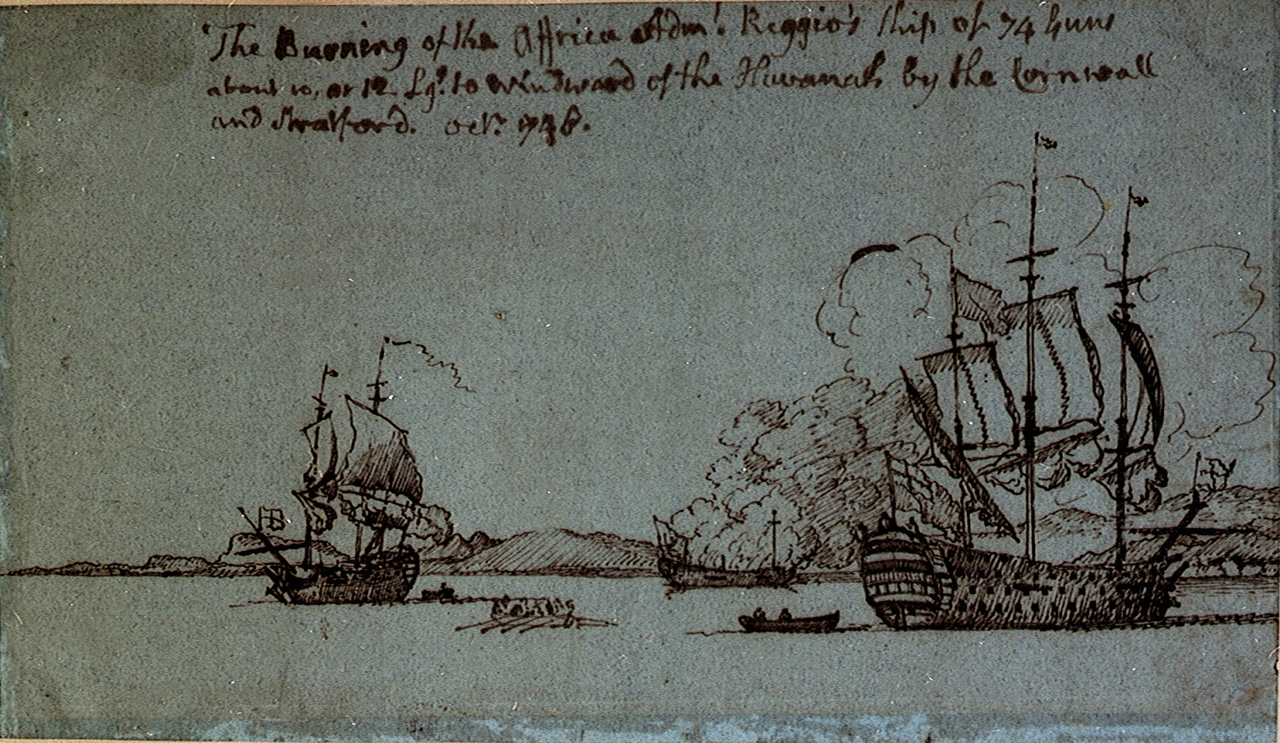 The Burning of the Affrica Adml. Reggio's Ship of 74 Guns
about 10, or 12 Lgs. to Windward of the Havanah by the Cornwall
and Strafford. octr. 1748.